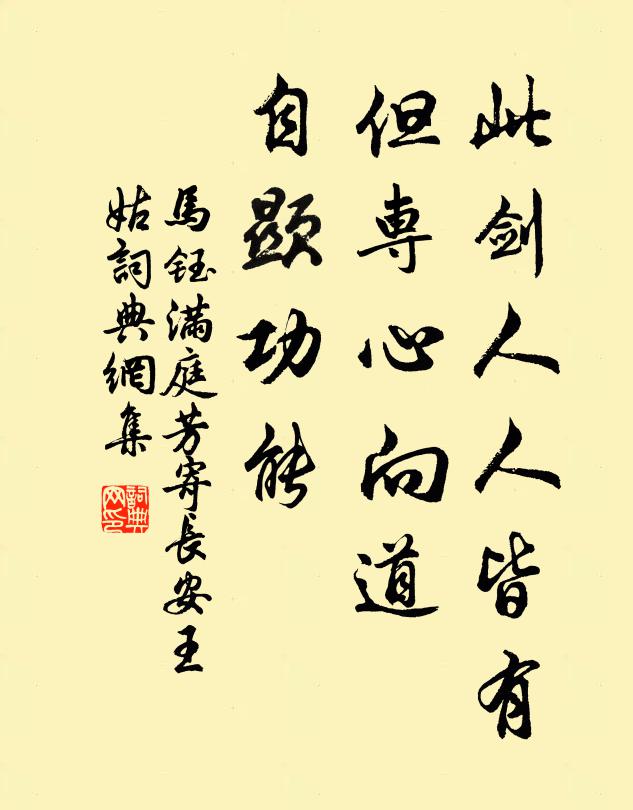 此劍人人皆有
但専心向道
自顯功能
馬鈺滿庭芳寄長安王
姑詞典網集
詞典
网印